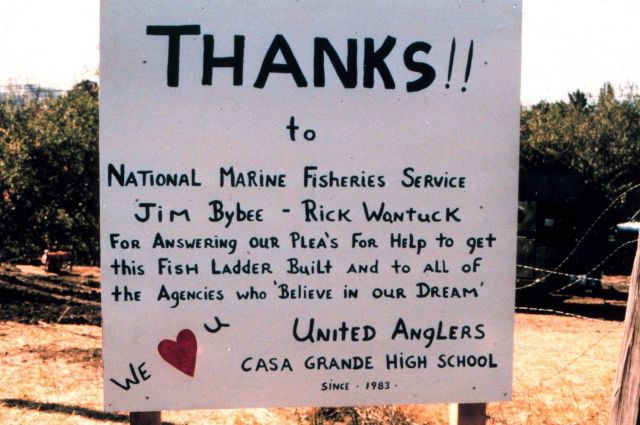 THANKS!!
to
NATIONAL MARINE FISHERIES SERVICE
JIM BYBEE - RICK WANTUCK
FOR ANSWERING OUR PLEA'S FOR HELP to get
this FISH LADDER BUILT AND to ALL OF
the AGENCIES WHO 'BELIEVE IN OUR DREAM'
WE ♥ U
UNITED ANGLERS
CASA GRANDE HIGH SCHOOL
SINCE · 1983 ·